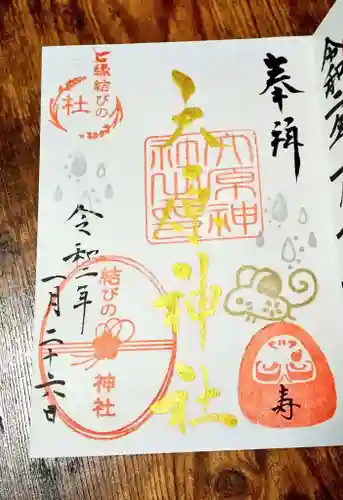 奉拝
大原神社
ご縁結びの
社
令和二年
一月二十六日
結びの
神社
寿
令和二年